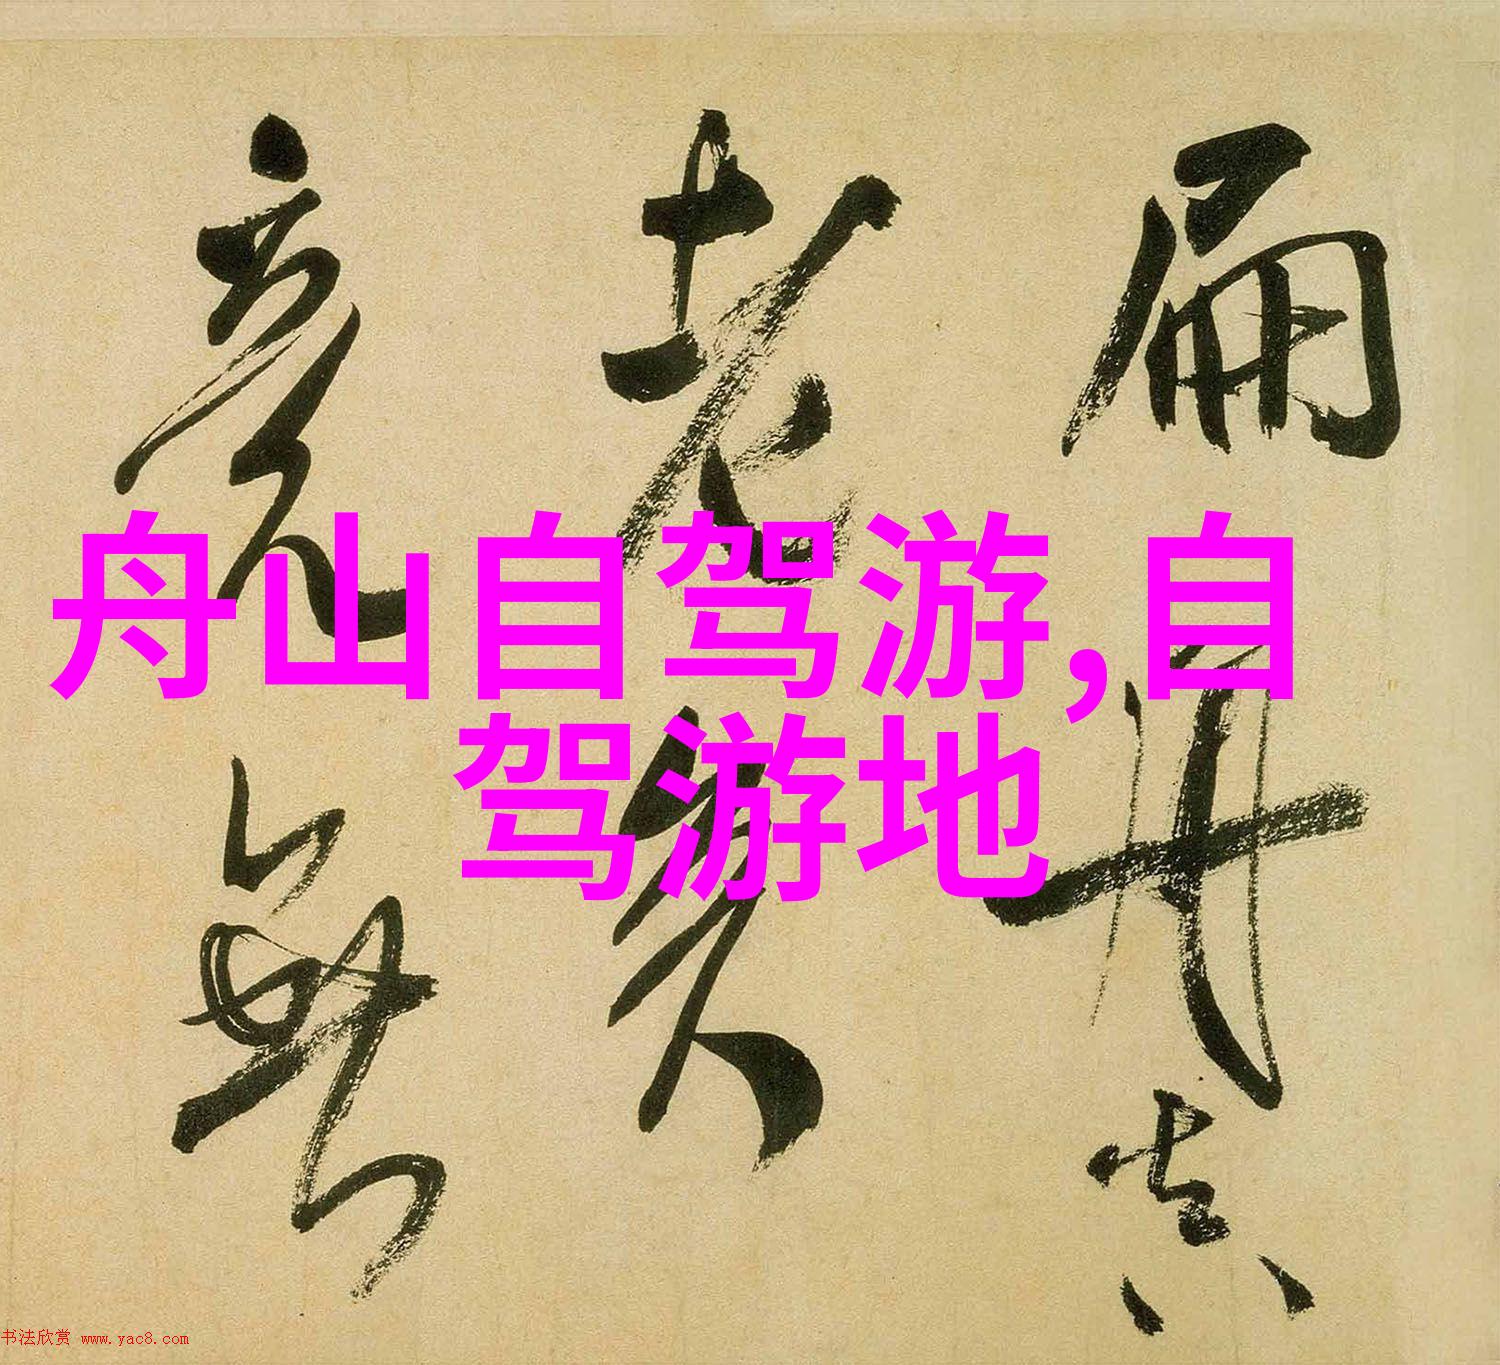 舟山自驾游,自
驾游地
扁舟
老
竟無
书法欣赏 www.yac8.com